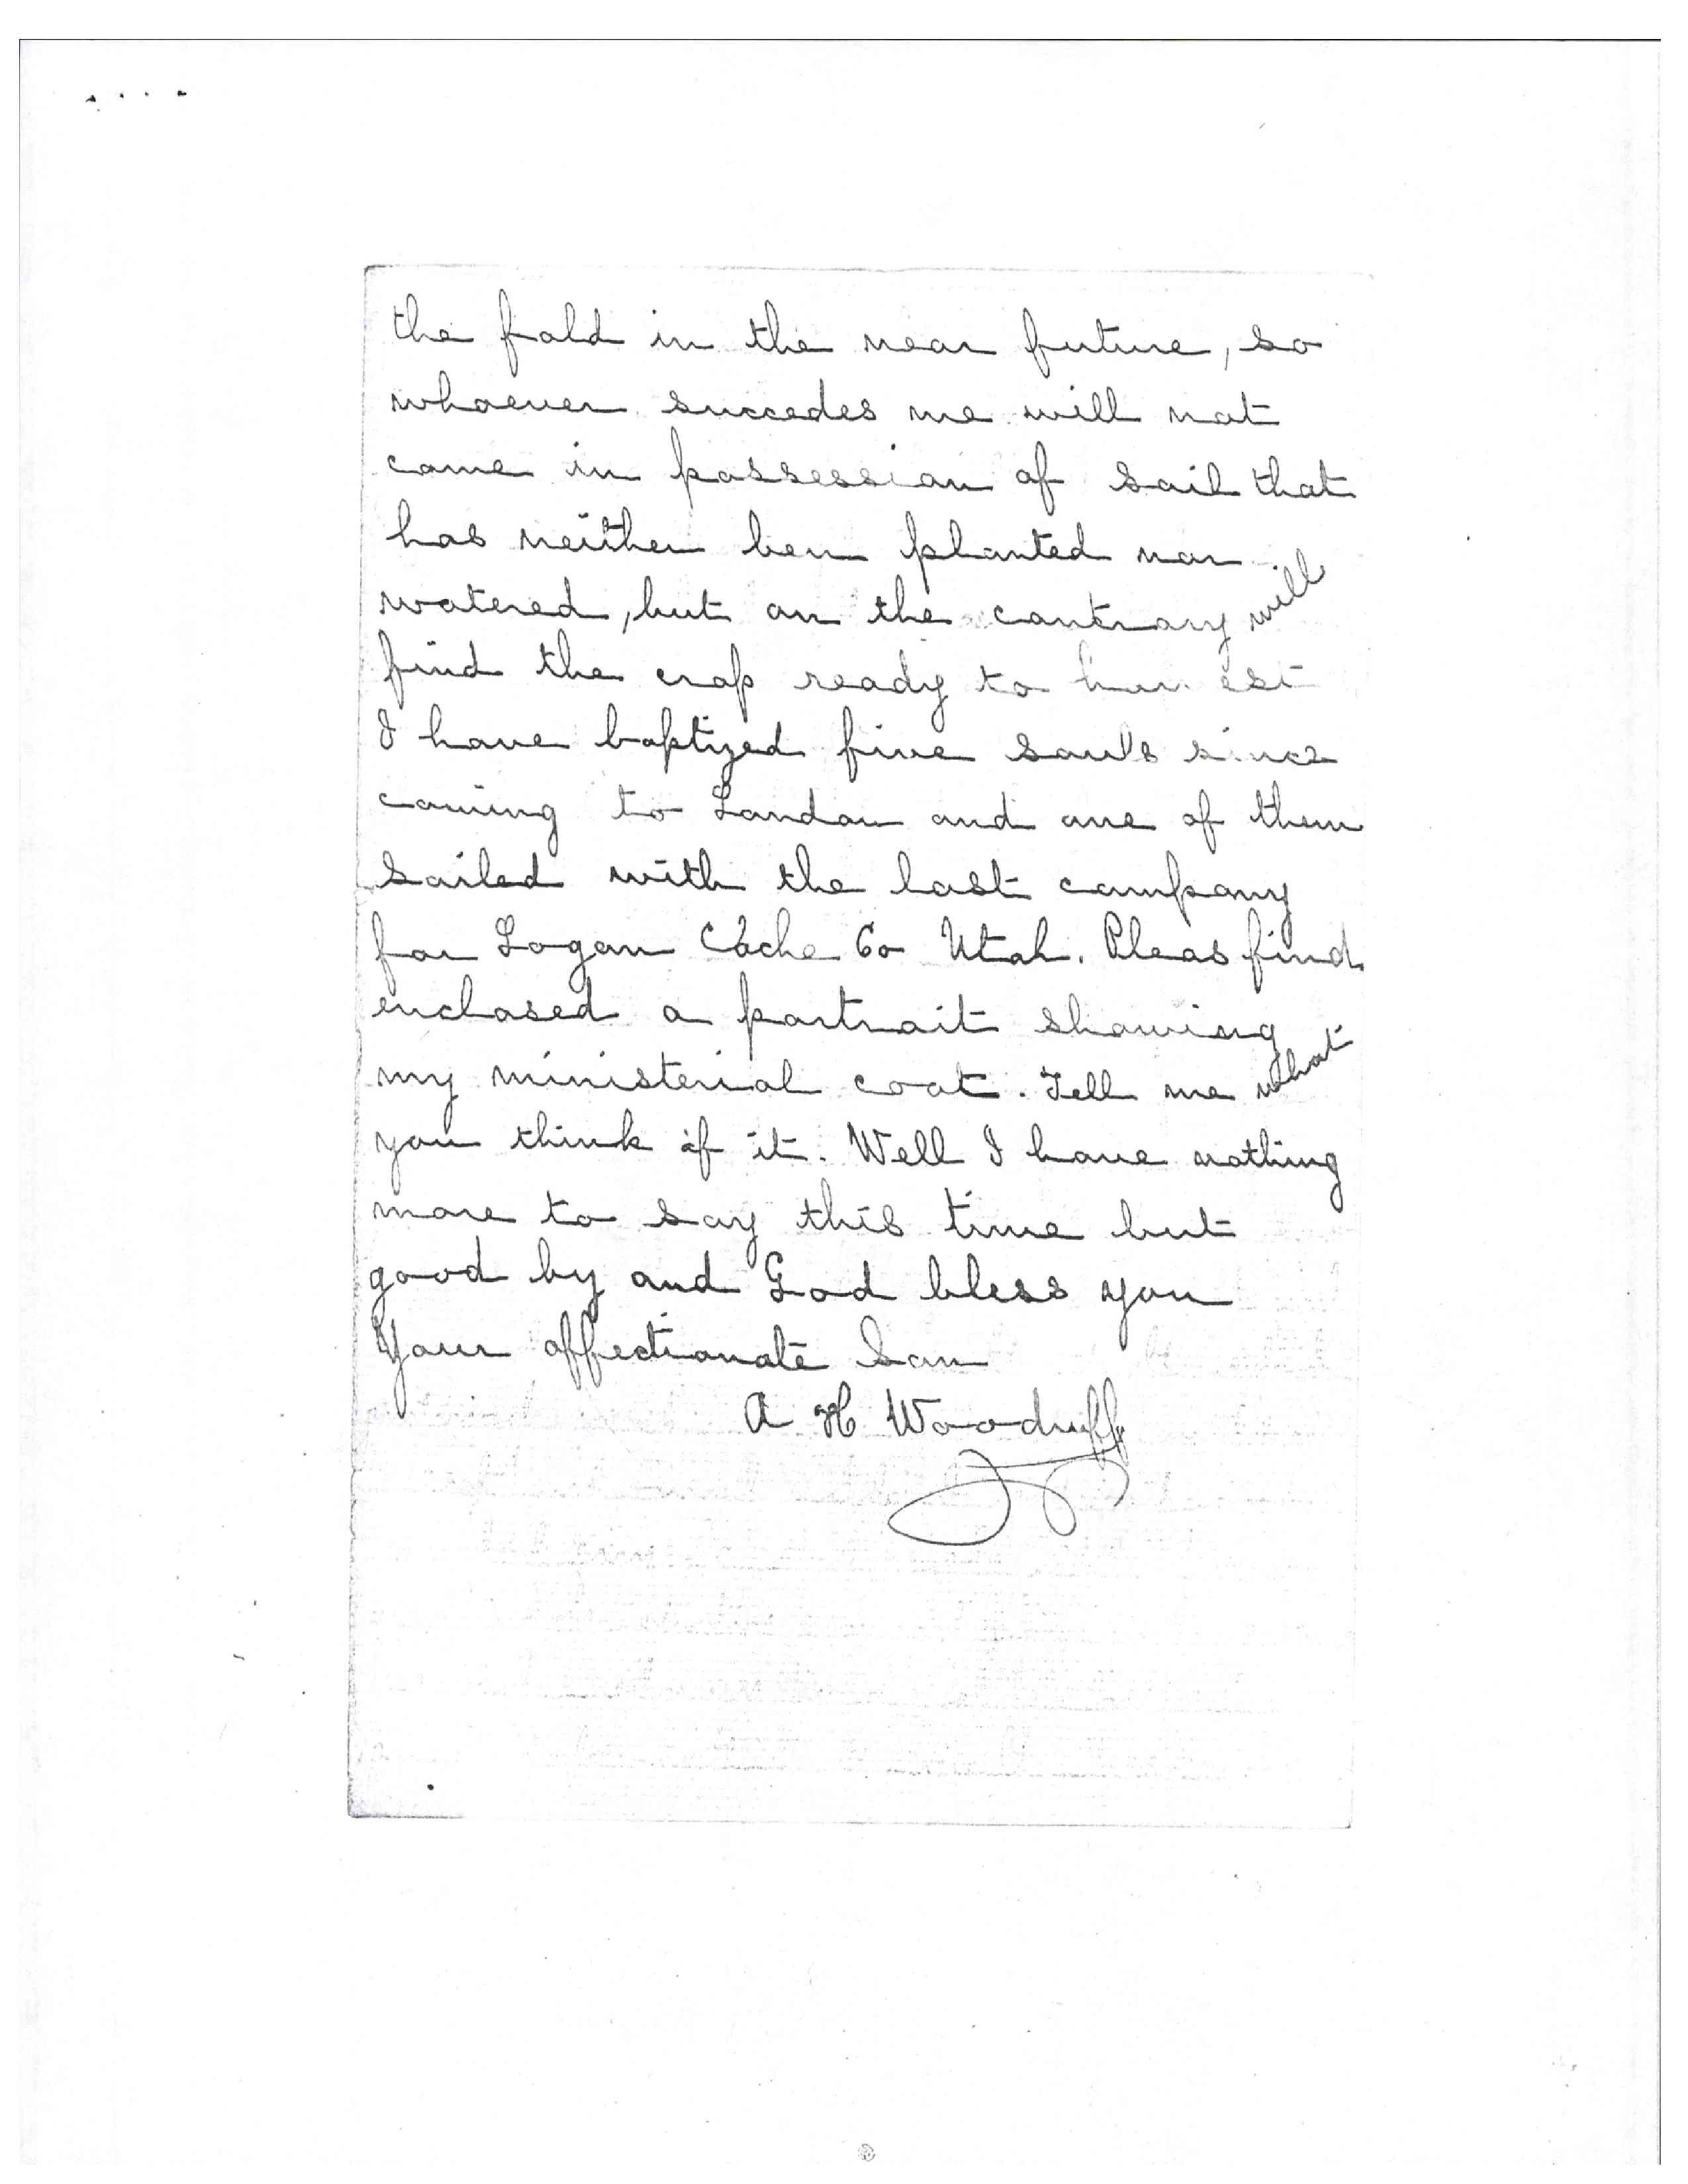 the fold in the near future, so
whoever succedes me will not
come in possession of soil that
has neither ben planted nor
watered, but on the contrary will
find the crop ready to harvest
I have baptized five souls since
coming to London and one of them
sailed with the last company
for Logan Cache Co Utah. Pleas find
enclosed a portrait showing
my ministerial coat. Tell me what
you think of it. Well I have nothing
more to say this time but
good by and God bless you
Your affectionate Son
A H Woodruff